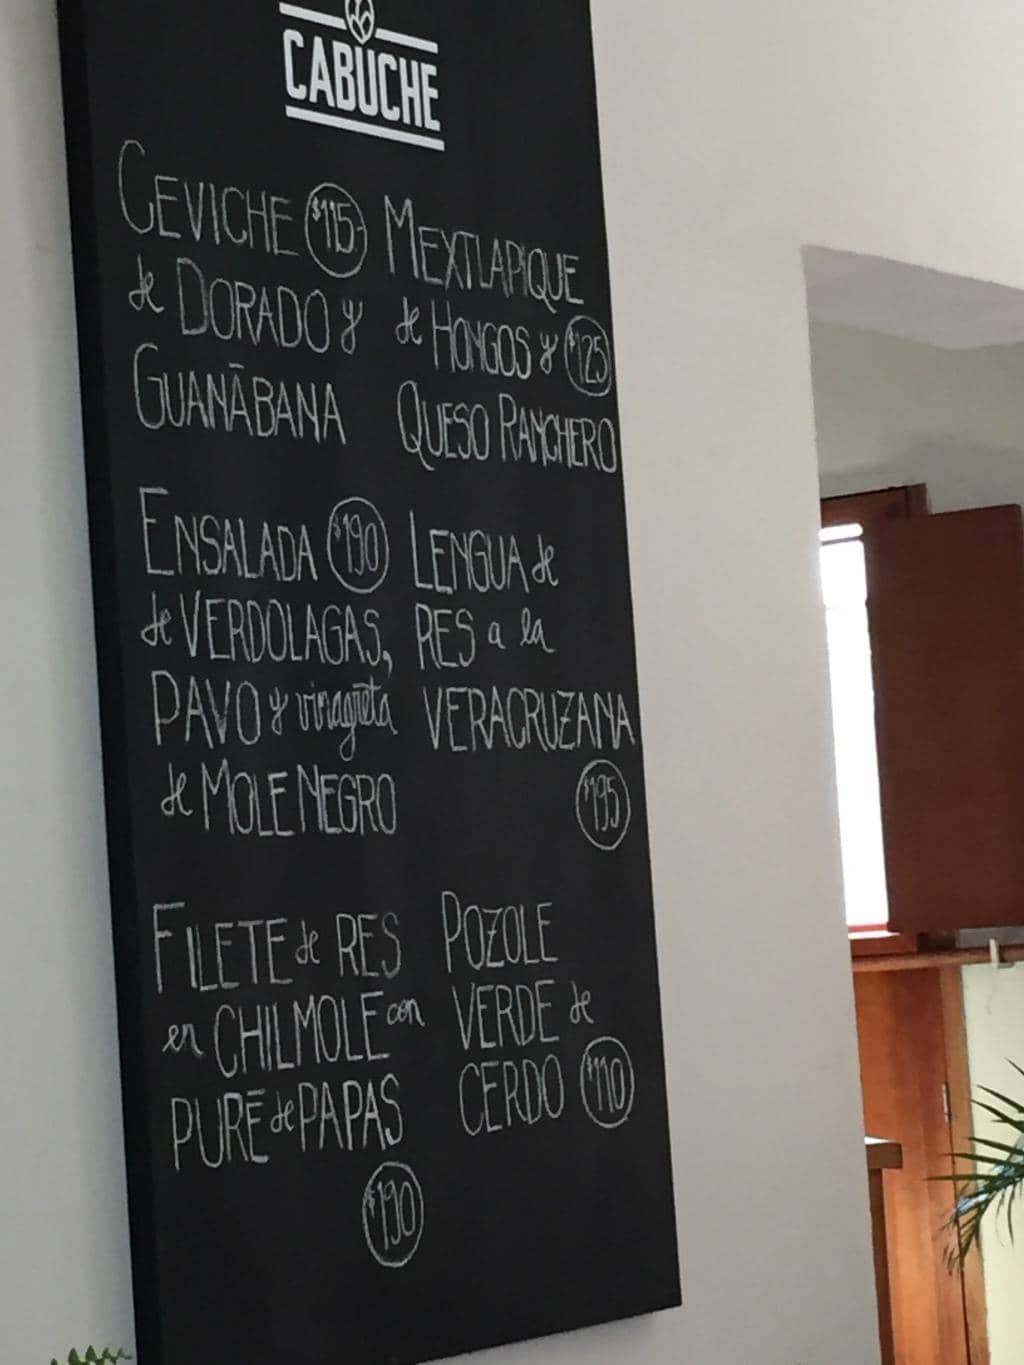 CABUCHE
CEVICHE $115-
de DORADO y
GUANĀBANA
MEXTLAPIQUE
de HONGOS y $125
QUESO RANCHERO
ENSALADA $190
de VERDOLAGAS,
PAVO y vinagreta
de MOLE NEGRO
LENGUA de
RES a la
VERACRUZANA
$195
FILETE de RES
en CHILMOLE con
PURĒ de PAPAS
$190
POZOLE
VERDE de
CERDO $110